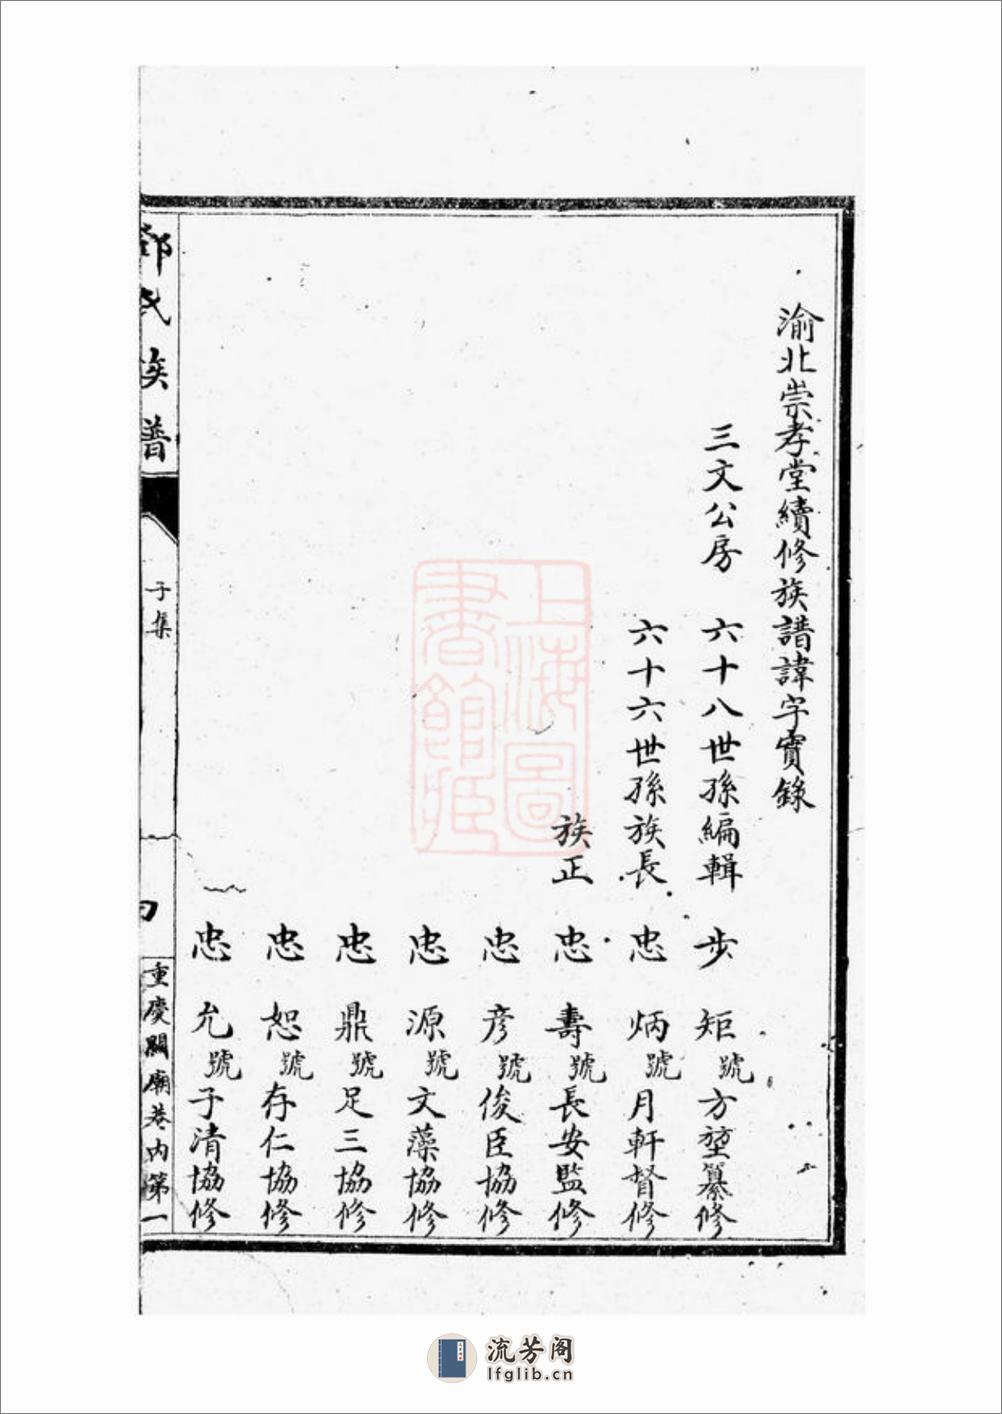 渝北崇孝堂續修族譜諱字實錄
三文公房 六十八世孫編輯 步 矩號方堃纂修
六十六世孫族長 忠 炳號月軒督修
族正 忠 壽號長安監修
忠 彦號俊臣協修
忠 源號文藻協修
忠 鼎號足三協修
忠 恕號存仁協修
忠 允號子清協修
氏族譜
子集
重慶關廟巷內第一
上海圖書館藏
流芳阁
lfglib.cn